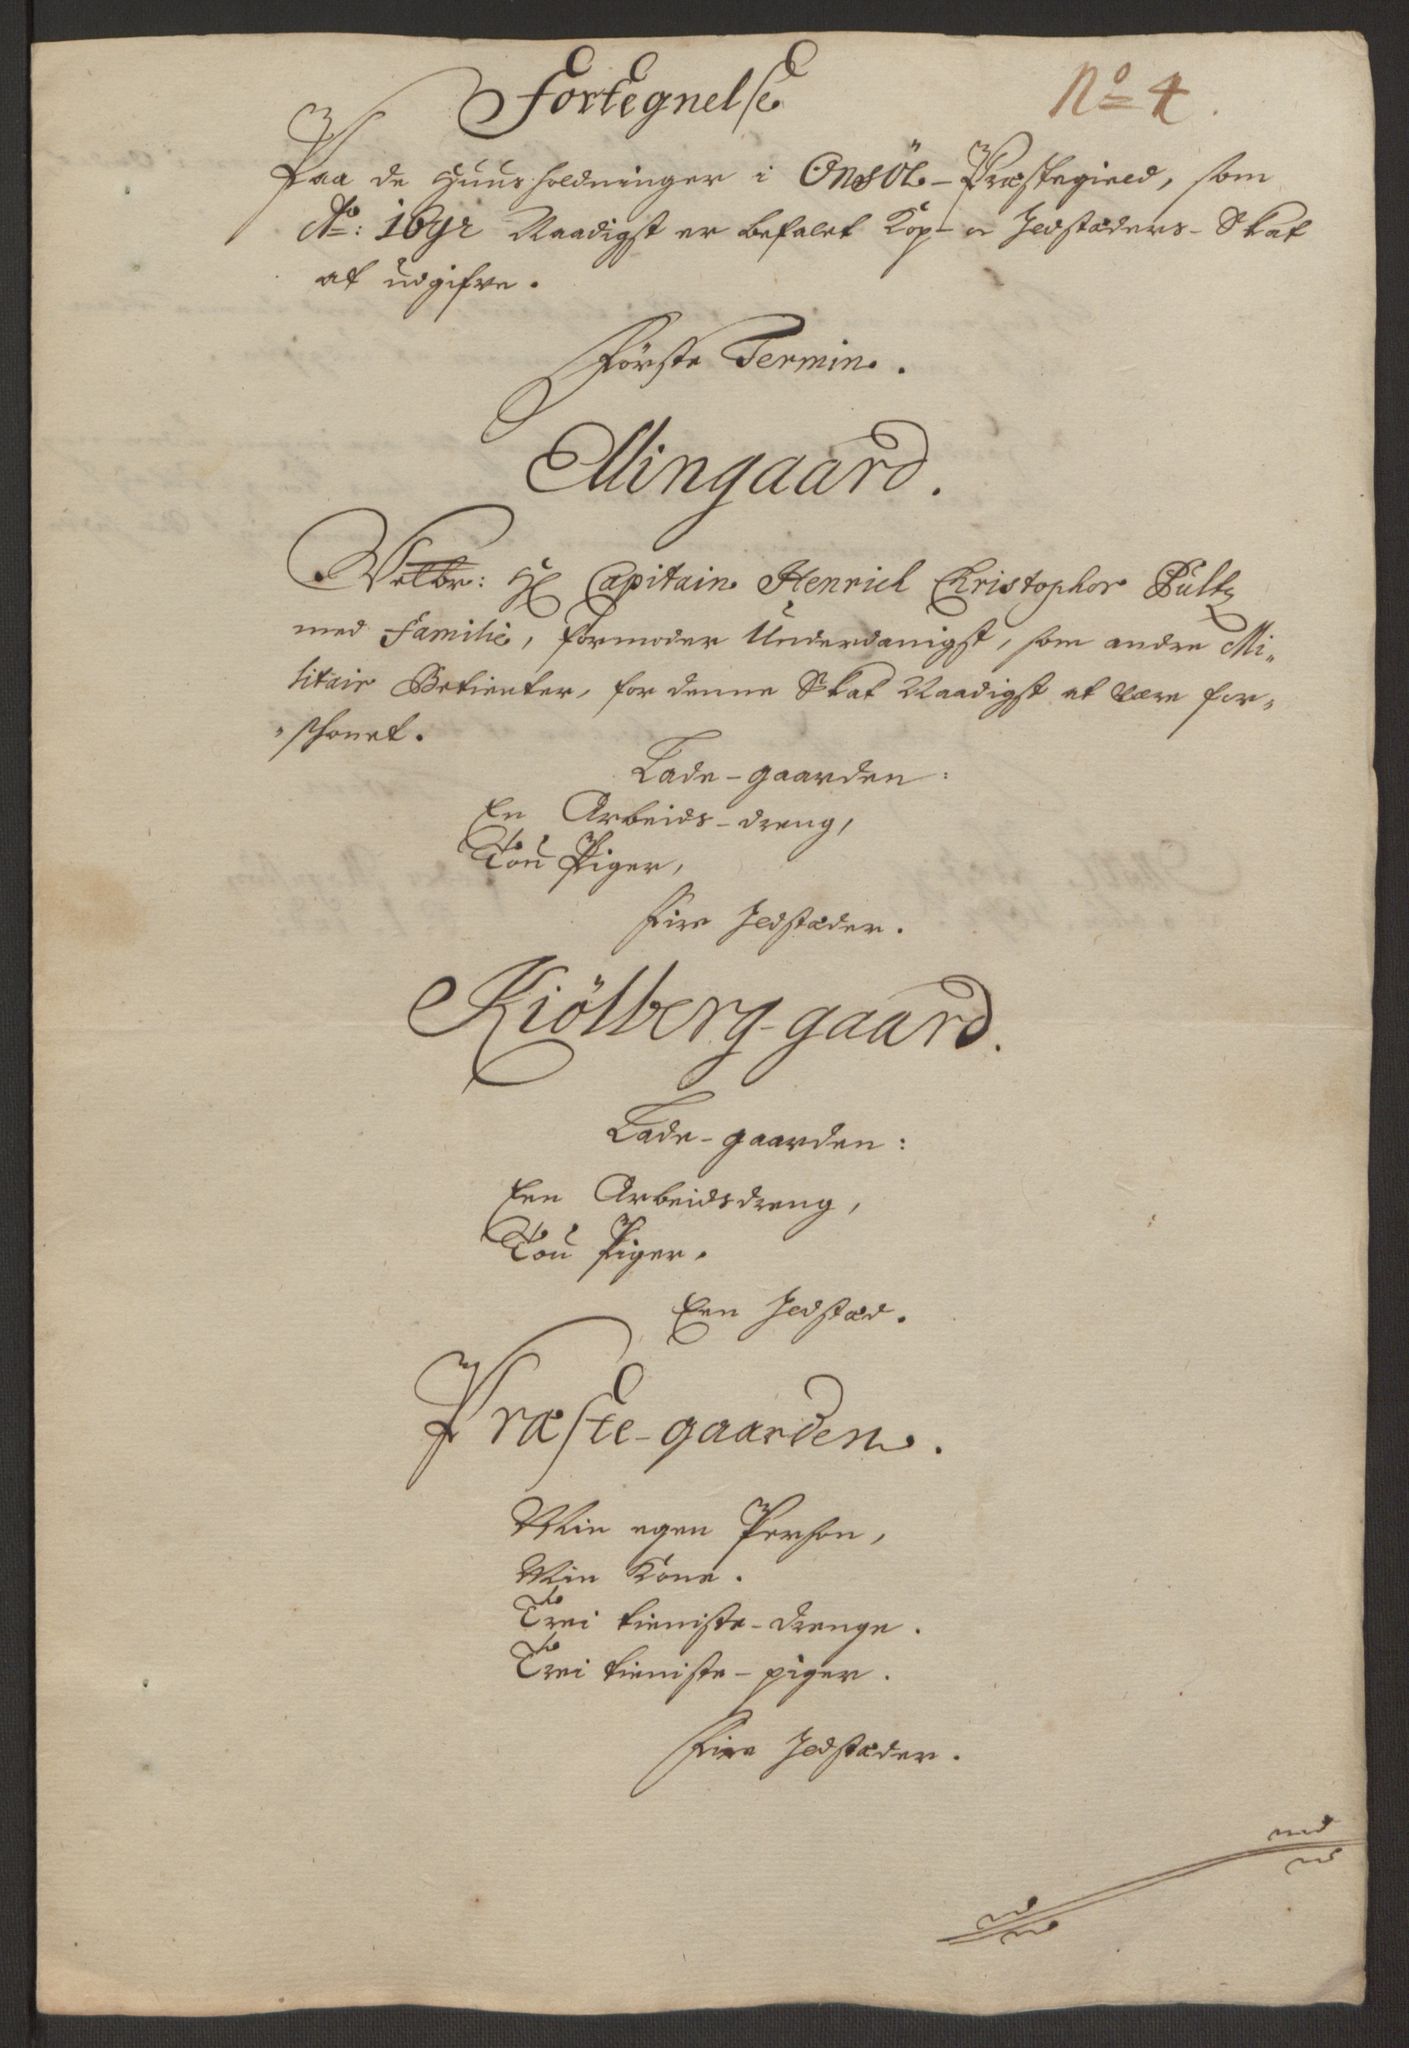 Fortegnelse
No 4.
Paa de Huusholdninger i Onsöe-Præstegield, som
Ao: 1691 Naadigst er befalet Kop- oc Ildstæders-Skat
at udgifve.
Förste Termin.
Elingaard.
Velbr: Hr Capitain Henrich Christophor Sültz
med Familie, formoder Underdanigst, som andre Mi-
litair Betienter, for denne Skat Naadigst at være for-
-skonet.
Lade-gaarden:
En Arbeids-dreng,
Tou Piger,
Fire Ildstæder.
Kiölberg-gaard.
Lade-gaarden:
Een Arbeidsdreng,
Tou Piger.
Een Ildstæd.
Præste-gaarden.
Min egen Person,
Min Kone.
Trei tieniste-drenge.
Trei tieniste-piger.
Fire Ildstæder.